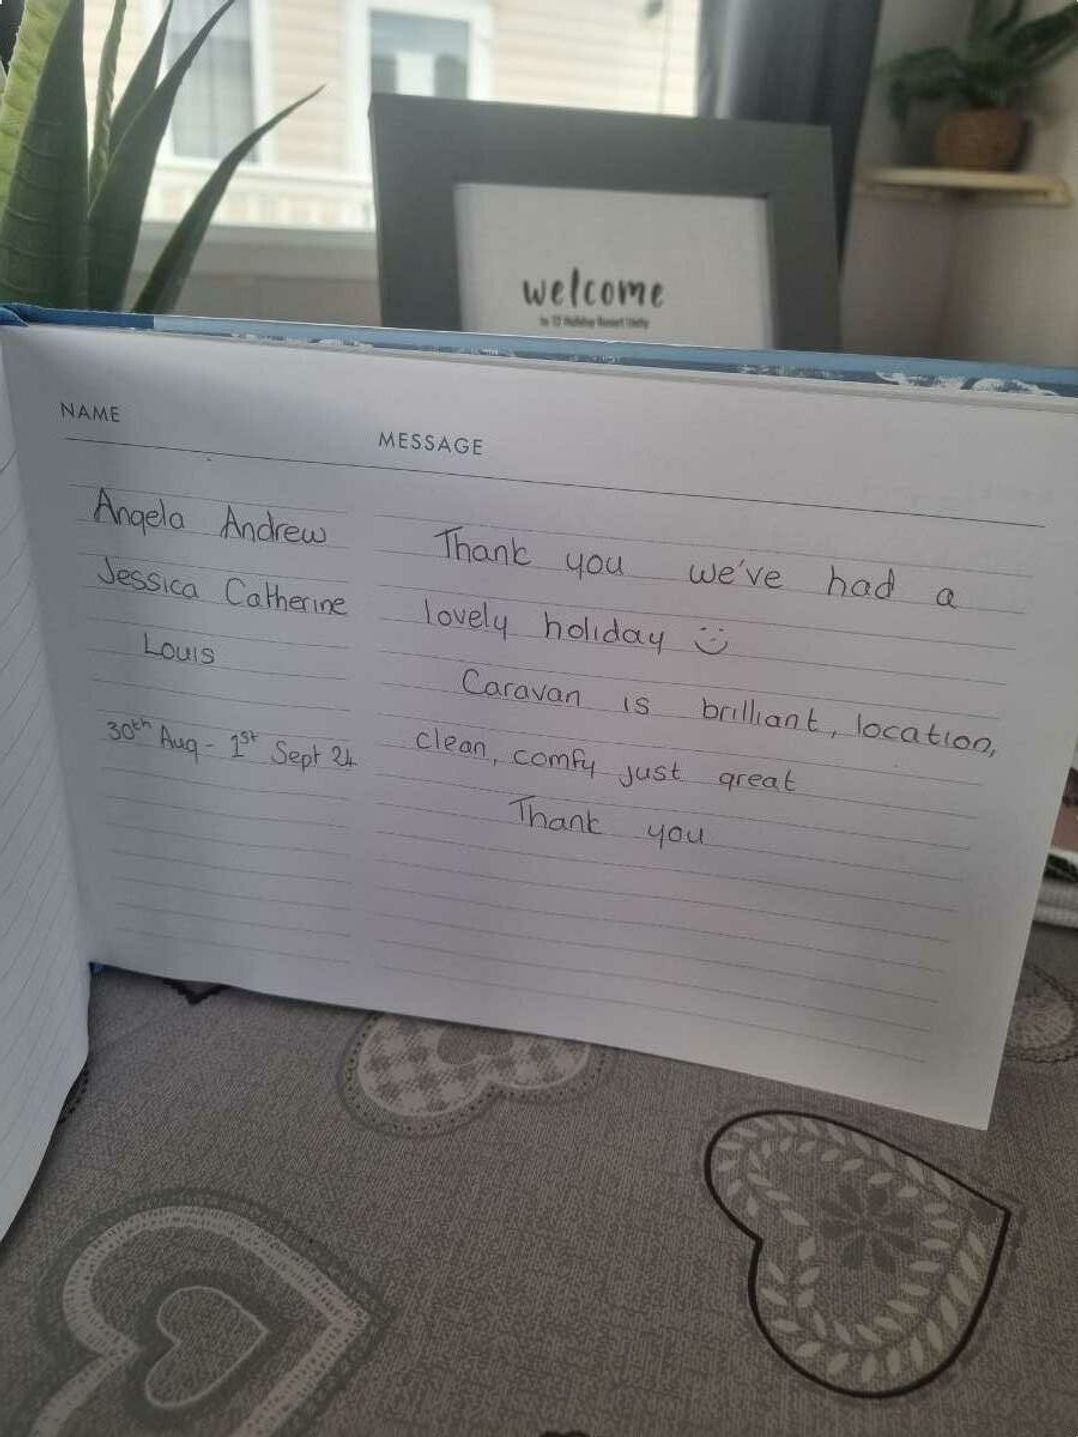 welcome
to 12 Holiday Resort Unity
NAME
MESSAGE
Angela Andrew
Jessica Catherine
Louis
30th Aug - 1st Sept 24
Thank you we've had a
lovely holiday
Caravan is brilliant, location,
clean, comfy just great
Thank you